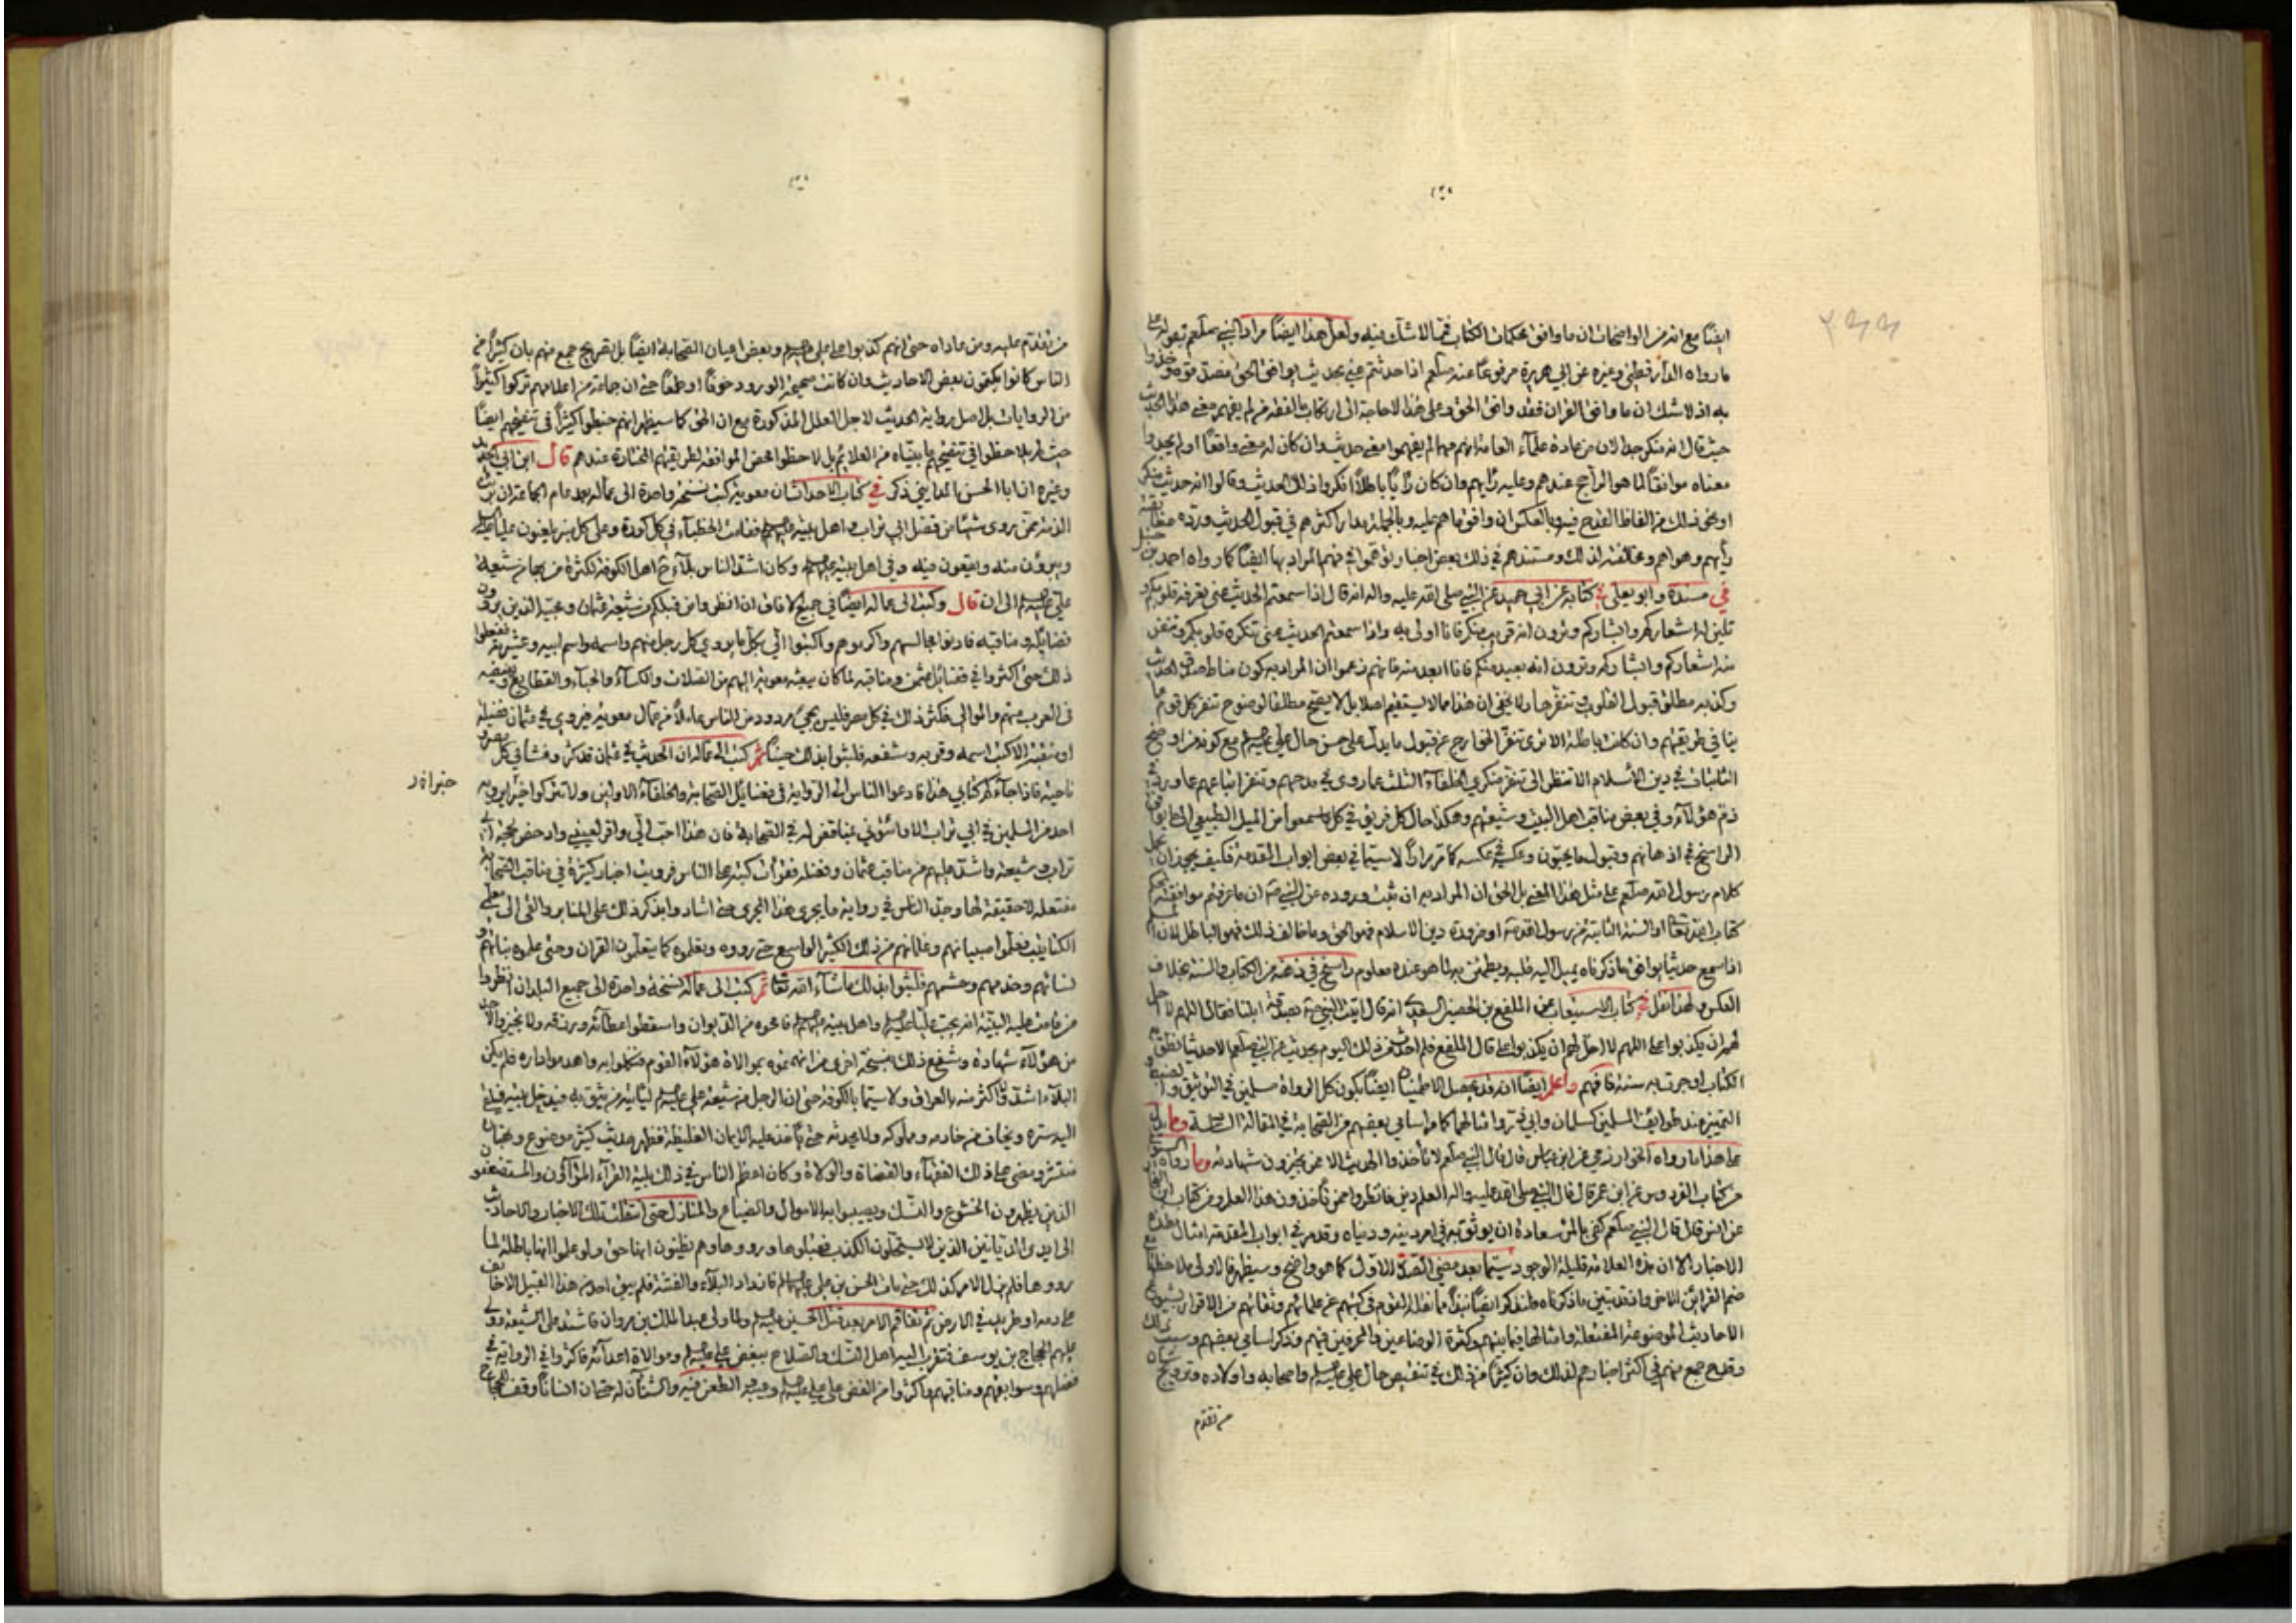 ايضًا مع انه من الواضحات ان ما وافق محكمات الكتاب فمما لا شك فيه ولعل هذا ايضًا مراد النبي صلعم بقوله على
ما رواه الدارقطني وغيره عن ابي هريرة مرفوعًا عنه صلعم اذا حدثتم عني بحديث يوافق الحق فصدقوه وخذوا
به اذ لا شك ان ما وافق القران فقد وافق الحق وعلى هذا لا حاجة الى ارتكاب ما الفقه فمن لم يفهم معنى هذا الحديث
حيث قال انه منكر جدا لان من عادة علماء العامة انهم مهما لم يفهموا معنى حديث وان كان له معنى واقعًا او لم يجدوا
معناه موافقًا لما هو الراجح عندهم وعليه رأيهم وان كان رأيًا باطلًا انكروا ذلك الحديث وقالوا انه حديث منكر
او نحو ذلك من الفاظ القدح فيه وبالعكس ان وافق ما هم عليه وبالجملة مدار اكثرهم في قبول الحديث ورده
رأيهم وهواهم ومخالفته لذلك ومستندهم في ذلك بعض اخبار توهموا في فهم المراد بها ايضًا كما رواه احمد بن حنبل
في مسنده وابو يعلى في كتابه عن ابي حميد عن النبي صلى الله عليه واله انه قال اذا سمعتم الحديث عني تعرفه قلوبكم و
تلين له اشعاركم وابشاركم وترون انه قريب منكم فانا اولى به واذا سمعتم الحديث عني تنكره قلوبكم وتنفر
منه اشعاركم وابشاركم وترون انه بعيد منكم فانا ابعد منه فانهم زعموا ان المراد به كون مناط صدق الحديث
وكذبه مطلق قبول القلوب وتنفرها ولا يخفى ان هذا مما لا يستقيم اصلا بل لا يصح مطلقا لوضوح تنفر كل قوم
ينافي طريقتهم وان كانت باطلة الا ترى تنفر الخوارج عن قبول ما يدل على حسن حال علي عليه السلم مع كونه من اوضح
الثابتات في دين الاسلام الا تنظر الى تنفر منكري الخلفاء الثلث عما روي في مدحهم وتنفر اتباعهم عما ورد في
ذم هؤلاء وفي بعض مناقب اهل البيت وشيعتهم وهكذا حال كل فريق في كل ما سمعوا من الميل الطبيعي الى ما يوافق
الراسخ في اذهانهم وقبول ما يحبون وعكسه في عكسه كما مر مرارًا لا سيما في بعض ابواب المقدمة فكيف يجوز ان يحمل
كلام رسول الله صلعم على مثل هذا المعنى بل الحق ان المراد به ان ثبت وروده عن النبي ص ان ما عرفتم موافقته
كتاب الله تعالى او السنة الثابتة من رسول الله ص او ضرورة دين الاسلام فهو الحق وما خالف ذلك فهو الباطل لان
اذا سمع حديثا يوافق ما ذكرناه يميل اليه قلبه ويطمئن به لما هو عنده معلوم راسخ في ذهنه من الكتاب والسنة بخلاف
العكس ولهذا نقل في كتاب الاستيعاب عن الملفع بن الحصين السعدي انه قال اتيت النبي ص بصدقة ابلنا فقال اللهم لا احل
لهم ان يكذبوا علي اللهم لا احل لهم ان يكذبوا علي قال الملفع فلم احدث من ذلك اليوم بحديث عن النبي صلعم الا حديثا نطق به
الكتاب او جرت به سنة فافهم واعلم ايضًا انه قد يحصل الاطمينان ايضًا بكون كل الرواة مسلمين في التوثيق و
التميز عند طوائف المسلمين كسلمان وابي ذر وامثالهما كما مر اسامي بعضهم من الصحابة في المقالة السابقة ومما يدل
على هذا ما رواه الخوارزمي عن ابن عباس قال قال النبي صلعم لا تأخذوا الحديث الا عمن تجيزون شهادته وما رواه
من كتاب الفردوس عن ابن عمر قال قال النبي صلى الله عليه واله العلم دين فانظروا عمن تأخذون هذا العلم ومن كتاب ابن النجار
عن انس قال قال النبي صلعم كفى بالمرء سعادة ان يوثق به في امر دينه ودنياه وقد مر في ابواب المقدمة امثال هذه
الاخبار الا ان هذه العلامة قليلة الوجود سيما بعد مضي الصدر الاول كما هو واضح وسيظهر فالاولى ملاحظة
ضم القرائن الاخر واذ قد تبين ما ذكرناه فلنذكر ايضًا نبذًا مما نقله القوم في كتبهم عن علمائهم وثقاتهم من الاقرار بشيوع
الاحاديث الموضوعة المفتعلة وامثالها فيما بينهم وكثرة الوضاعين والمحرفين فيهم ونذكر اسامي بعضهم وسبب ذلك
وقدح جمع منهم في اكثر اخبارهم لذلك وان كثيرًا من ذلك في تنقيص حال علي عليه السلم واصحابه واولاده وترويج شان
من تقدم
من تقدم عليه ومن عاداه حتى انهم كذبوا على علي عليه السلم وبعض اعيان الصحابة ايضًا بل تصريح جمع منهم بان كثيرًا من
الناس كانوا يكتمون بعض الاحاديث وان كانت صحيحة الورود خوفًا او طمعًا حتى ان جماعة من اعلامهم تركوا كثيرًا
من الروايات بل اصل رواية الحديث لاجل العلل المذكورة مع ان الحق كما سيظهر انهم خبطوا كثيرًا في تنقيحهم ايضًا
حيث لم يلاحظوا في تنقيحهم ما بيناه من العلائم بل لاحظوا محض الموافقة لطريقتهم المختارة عندهم قال ابن ابي الحديد
وغيره ان ابا الحسن المدايني ذكر في كتاب الاحداث ان معوية كتب نسخة واحدة الى عماله بعد عام الجماعة ان برئت
الذمة ممن روى شيئًا من فضل ابي تراب واهل بيته عليهم السلم فقامت الخطباء في كل كورة وعلى كل منبر يلعنون عليًا عليه السلم
ويبرؤن منه ويقعون فيه وفي اهل بيته عليهم السلم وكان اشد الناس بلاء ح اهل الكوفة لكثرة من بها من شيعة
علي عليه السلم الى ان قال وكتب الى عماله ايضًا في جميع الافاق ان انظروا من قبلكم من شيعة عثمان ومحبيه الذين يروون
فضايله ومناقبه فادنوا مجالسهم واكرموهم واكتبوا الي بكل ما يروي كل رجل منهم واسمه واسم ابيه وعشيرته ففعلوا
ذلك حتى اكثروا في فضائل عثمن ومناقبه لما كان يبعثه معوية اليهم من الصلات والكساء والحباء والقطايع ويفيضه
في العرب منهم والموالي فكثر ذلك في كل مصر فليس يجيء مردود من الناس عاملًا من عمال معوية فيروي في عثمان فضيلة
او منقبة الا كتب اسمه وقربه وشفعه فلبثوا بذلك حينًا ثم كتب الى عماله ان الحديث في عثمان قد كثر وفشا في كل مصر و
ناحية فاذا جاءكم كتابي هذا فادعوا الناس الى الرواية في فضايل الصحابة والخلفاء الاولين ولا تتركوا خبرًا يرويه
احد من المسلمين في ابي تراب الا وأتوني بمناقض له في الصحابة فان هذا احب الي واقر لعيني وادحض لحجة ابي
تراب وشيعته واشد عليهم من مناقب عثمان وفضله فقرأت كتبه على الناس فرويت اخبار كثيرة في مناقب الصحابة
مفتعلة لا حقيقة لها وجد الناس في رواية ما يجري هذا المجرى حتى اشادوا بذكر ذلك على المنابر والقي الى معلمي
الكتاتيب فعلموا صبيانهم وغلمانهم من ذلك الكثير الواسع حتى رووه وتعلموه كما يتعلمون القران وحتى علموه بناتهم و
نسائهم وخدمهم وحشمهم فلبثوا بذلك ما شاء الله تعالى ثم كتب الى عماله نسخة واحدة الى جميع البلدان انظروا
من قامت عليه البينة انه يحب عليًا عليه السلم واهل بيته عليهم السلم فامحوه من الديوان واسقطوا عطائه ورزقه ولا تجيزوا لاحد
من هؤلاء شهادة وشفع ذلك بنسخة اخرى من اتهمتموه بموالاة هؤلاء القوم فنكلوا به واهدموا داره فلم يكن
البلاء اشد ولا اكثر منه بالعراق ولا سيما بالكوفة حتى ان الرجل من شيعة علي عليه السلم ليأتيه من يثق به فيدخل بيته فيلقي
اليه سره ويخاف من خادمه ومملوكه ولا يحدثه حتى يأخذ عليه الايمان الغليظة فظهر حديث كثير موضوع وبهتان
منتشر ومضى على ذلك الفقهاء والقضاة والولاة وكان اعظم الناس في ذلك بلية القراء المراؤن والمستضعفون
الذين يظهرون الخشوع والنسك ويصيبوا به الاموال والضياع والمنازل حتى انتقلت تلك الاخبار والاحاديث
الى ايدي الديانين الذين لا يستحلون الكذب فقبلوها ورووها وهم يظنون انها حق ولو علموا انها باطلة لما
رووها فلم يزل الامر كذلك حتى مات الحسن بن علي عليهما السلم فازداد البلاء والفتنة فلم يبق احد من هذا القبيل الا خائف
على دمه او طريد في الارض ثم تفاقم الامر بعد قتل الحسين عليه السلم ولما ولى عبد الملك بن مروان فاشتد على الشيعة وولى
عليهم الحجاج بن يوسف فتقرب اليه اهل النسك والصلاح ببغض علي عليه السلم وموالاة اعدائه فاكثروا في الرواية في
فضلهم وسوابقهم ومناقبهم واكثروا من الغض على علي عليه السلم وعيبه والطعن فيه والشنآن له حتى ان انسانًا وقف للحجاج